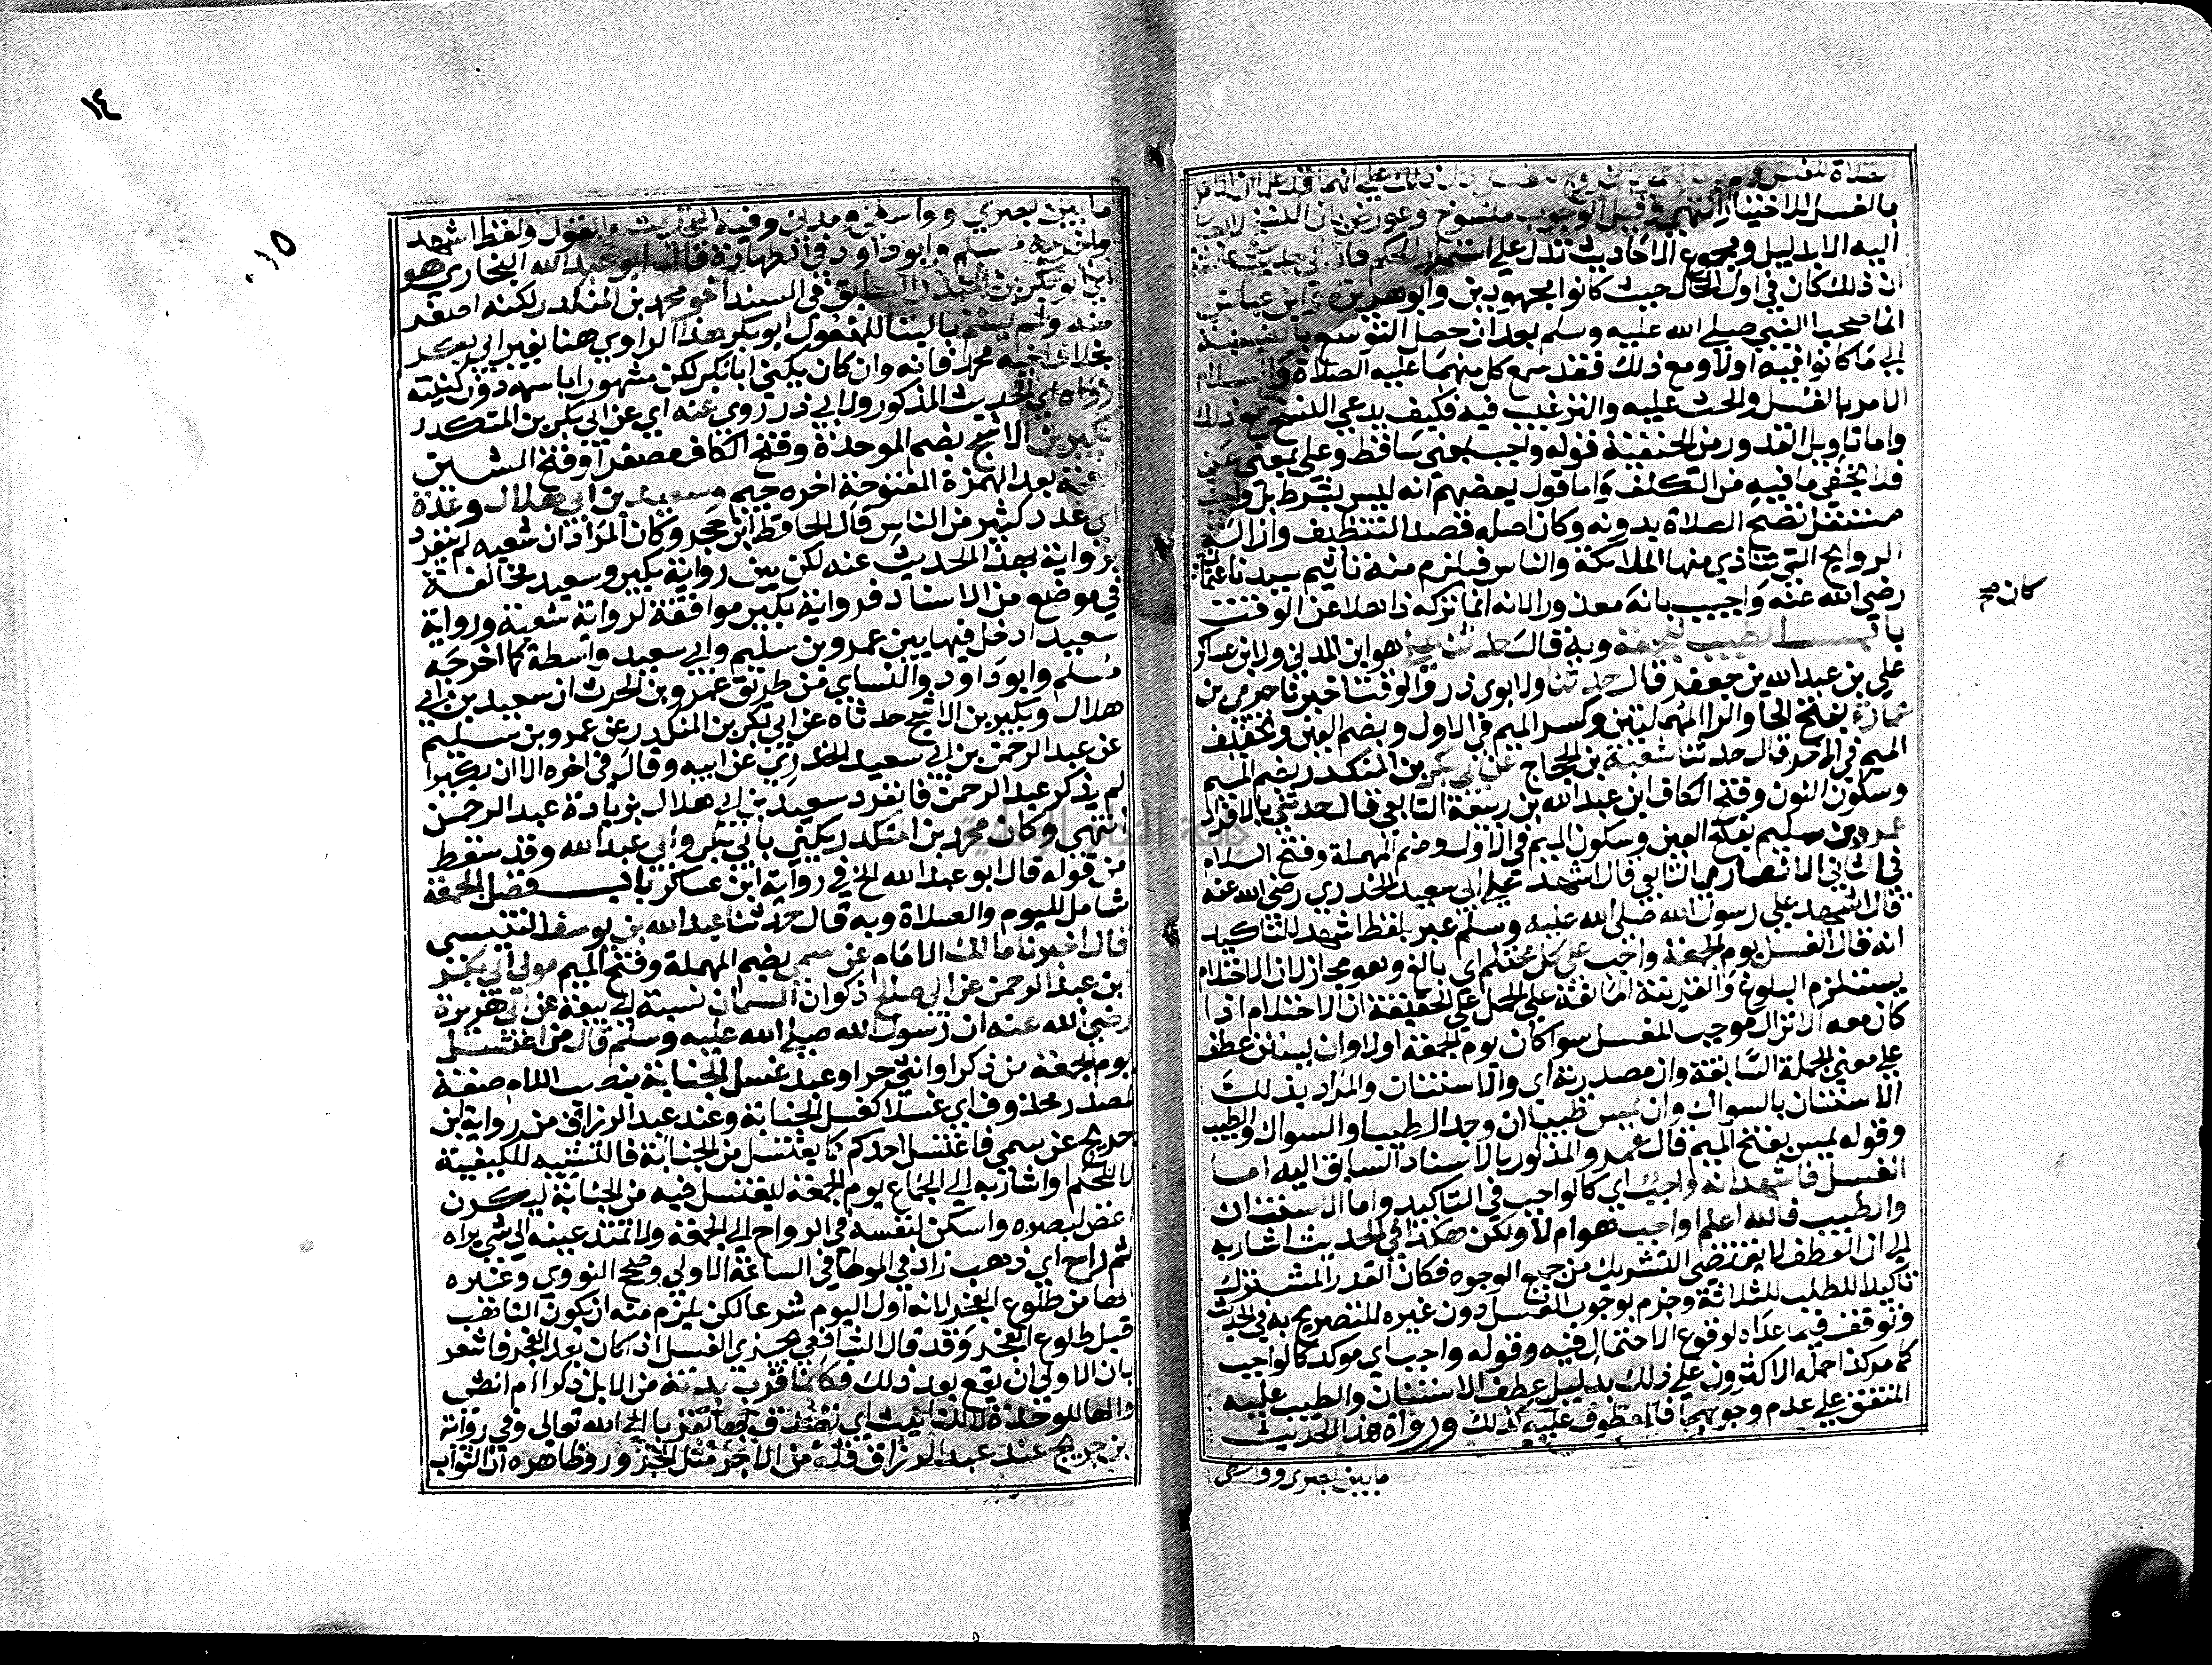 بالغسل للاختيار انتهي وقيل الوجوب منسوخ وعورض بان النسخ لا يصار
اليه الا بدليل ومجموع الاحاديث تدل علي استمرار الحكم فان في حديث عايشة
ان ذلك كان في اول الحال حيث كانوا مجهودين وابو هريرة وابن عباس
انما صحب النبي صلي الله عليه وسلم بعد ان حصل التوسع بالنسبة
الي ما كانوا فيه اولا ومع ذلك فقد سمع كل منهما عليه الصلاة والسلام
الامر بالغسل والحث عليه والترغيب فيه فكيف يدعي النسخ مع ذلك
واما تاويل القدوري من الحنفية قوله واجب بمعني ساقط وعلي بمعني عن
فلا يخفي ما فيه من التكلف واما قول بعضهم انه ليس بشرط بل واجب
مستقل تصح الصلاة بدونه وكان اصله قصد التنظيف وازالة
الروايح التي تتاذي منها الملائكة والناس فيلزم منه تاثيم سيدنا عثمان
رضي الله عنه واجيب بانه معذور لانه انما تركه ذاهلا عن الوقت
كان صح
باب الطيب للجمعة وبه قال حدثنا علي هو ابن المدني ولابن عساكر
علي بن عبد الله بن جعفر قال حدثنا ولابوي ذر والوقت اخبرنا حرمي بن
عمارة بفتح الحا والرا المهملتين وكسر الميم في الاول وبضم العين وتخفيف
الميم في الاخر قال حدثنا شعبة بن الحجاج عن ابي بكر بن المنكدر بضم الميم
وسكون النون وفتح الكاف ابن عبد الله بن ربيعة التابعي قال حدثني بالافراد
عمرو بن سليم بفتح العين وسكون الميم في الاول وضم المهملة وفتح اللام
في الثاني الانصاري التابعي قال اشهد علي ابي سعيد الخدري رضي الله عنه
قال اشهد علي رسول الله صلي الله عليه وسلم عبر بلفظ اشهد للتاكيد
انه قال الغسل يوم الجمعة واجب علي كل محتلم اي بالغ وهو مجاز لان الاحتلام
يستلزم البلوغ والقرينة المانعة علي الحمل علي الحقيقة ان الاحتلام اذا
كان معه الانزال موجب للغسل سوا كان يوم الجمعة اولا وان يستن عطف
علي معني الجملة السابقة وان مصدرية اي والاستنان والمراد بذلك
الاستنان بالسواك وان يمس طيبا ان وجد الطيب او السواك والطيب
وقوله يمس بفتح الميم قال عمرو المذكور بالاسناد السابق اليه اما
الغسل فاشهد انه واجب اي كالواجب في التاكيد واما الاستنان
والطيب فالله اعلم اواجب هو ام لا ولكن هكذا في الحديث اشار به
الي ان العطف لا يقتضي التشريك من جميع الوجوه فكان القدر المشترك
تاكيد الطلب للثلاثة وجزم بوجوب الغسل دون غيره للتصريح به في الحديث
وتوقف فيما عداه لوقوع الاحتمال فيه وقوله واجب اي موكد كالواجب
كما مر كذا حمله الاكثرون علي ذلك بدليل عطف الاستنان والطيب عليه
المتفق علي عدم وجوبهما فالمعطوف عليه كذلك ورواة هذا الحديث
ما بين بصري وواسطي
١٤
١٥
ما بين بصري وواسطي ومدني وفيه التحديث والقول ولفظ اشهد
واخرجه مسلم وابو داود في الطهارة قال ابو عبد الله البخاري هو
اي ابو بكر بن المنكدر السابق في السند اخو محمد بن المنكدر لكنه اصغر
منه ولم يسم بالبنا للمفعول ابو بكر هذا الراوي هنا بغير ابي بكر
بخلاف اخيه محمد فانه وان كان يكني ابا بكر لكن مشهورا باسمه دون كنيته
رواه اي الحديث المذكور ولابي ذر روي عنه اي عن ابي بكر بن المنكدر
بكير بن الاشج بضم الموحدة وفتح الكاف مصغرا وفتح الشين
المعجمة بعد الهمزة المفتوحة اخره جيم وسعيد بن ابي هلال وعدة
اي عدد كثير من الناس قال الحافظ ابن حجر وكان المراد ان شعبه لم ينفرد
برواية بهذا الحديث عنه لكن بين رواية بكير وسعيد مخالفة
في موضع من الاسناد فرواية بكير موافقة لرواية شعبة ورواية
سعيد ادخل فيها بين عمرو بن سليم وابي سعيد واسطة كما اخرجه
مسلم وابو داود والنساي من طريق عمرو بن الحرث ان سعيد بن ابي
هلال وبكير بن الاشج حدثاه عن ابي بكر بن المنكدر عن عمرو بن سليم
عن عبد الرحمن بن ابي سعيد الخدري عن ابيه وقال في اخره الا ان بكيرا
لم يذكر عبد الرحمن فانفرد سعيد بن ابي هلال بزيادة عبد الرحمن
انتهي وكان محمد بن المنكدر يكني بابي بكر وابي عبد الله وقد سقط
من قوله قال ابو عبد الله الخ في رواية ابن عساكر باب فضل الجمعة
شامل لليوم والصلاة وبه قال حدثنا عبد الله بن يوسف التنيسي
قال اخبرنا مالك الامام عن سمي بضم المهملة وفتح الميم مولي ابي بكر
ابن عبد الرحمن عن ابي صالح ذكوان السمان نسبة الي بيعه عن ابي هريرة
رضي الله عنه ان رسول الله صلي الله عليه وسلم قال من اغتسل
يوم الجمعة من ذكر او انثي حر او عبد غسل الجنابة بنصب اللام صفة
لمصدر محذوف اي غسلا كغسل الجنابة وعند عبد الرزاق من رواية ابن
جريج عن سمي فاغتسل احدكم كما يغتسل من الجنابة فالتشبيه للكيفية
لا للحكم او اشار به الي الجماع يوم الجمعة ليغتسل فيه من الجنابة ليكون
اغض لبصره واسكن لنفسه في الرواح الي الجمعة ولا تمتد عينه الي شي يراه
ثم راح اي ذهب زاد في الموطا في الساعة الاولي وصحح النووي وغيره
انها من طلوع الفجر لانه اول اليوم شرعا لكن يلزم منه ان يكون التاهب
قبل طلوع الفجر وقد قال الشافعي يجزي الغسل اذا كان بعد الفجر فاشعر
بان الاولي ان يقع بعد ذلك فكانما قرب بدنة من الابل ذكرا ام انثي
والها للوحدة لا للتانيث اي تصدق بها تقربا الي الله تعالي وفي رواية
بن جريج عند عبد الرزاق فله من الاجر مثل الجزور وظاهره ان الثواب